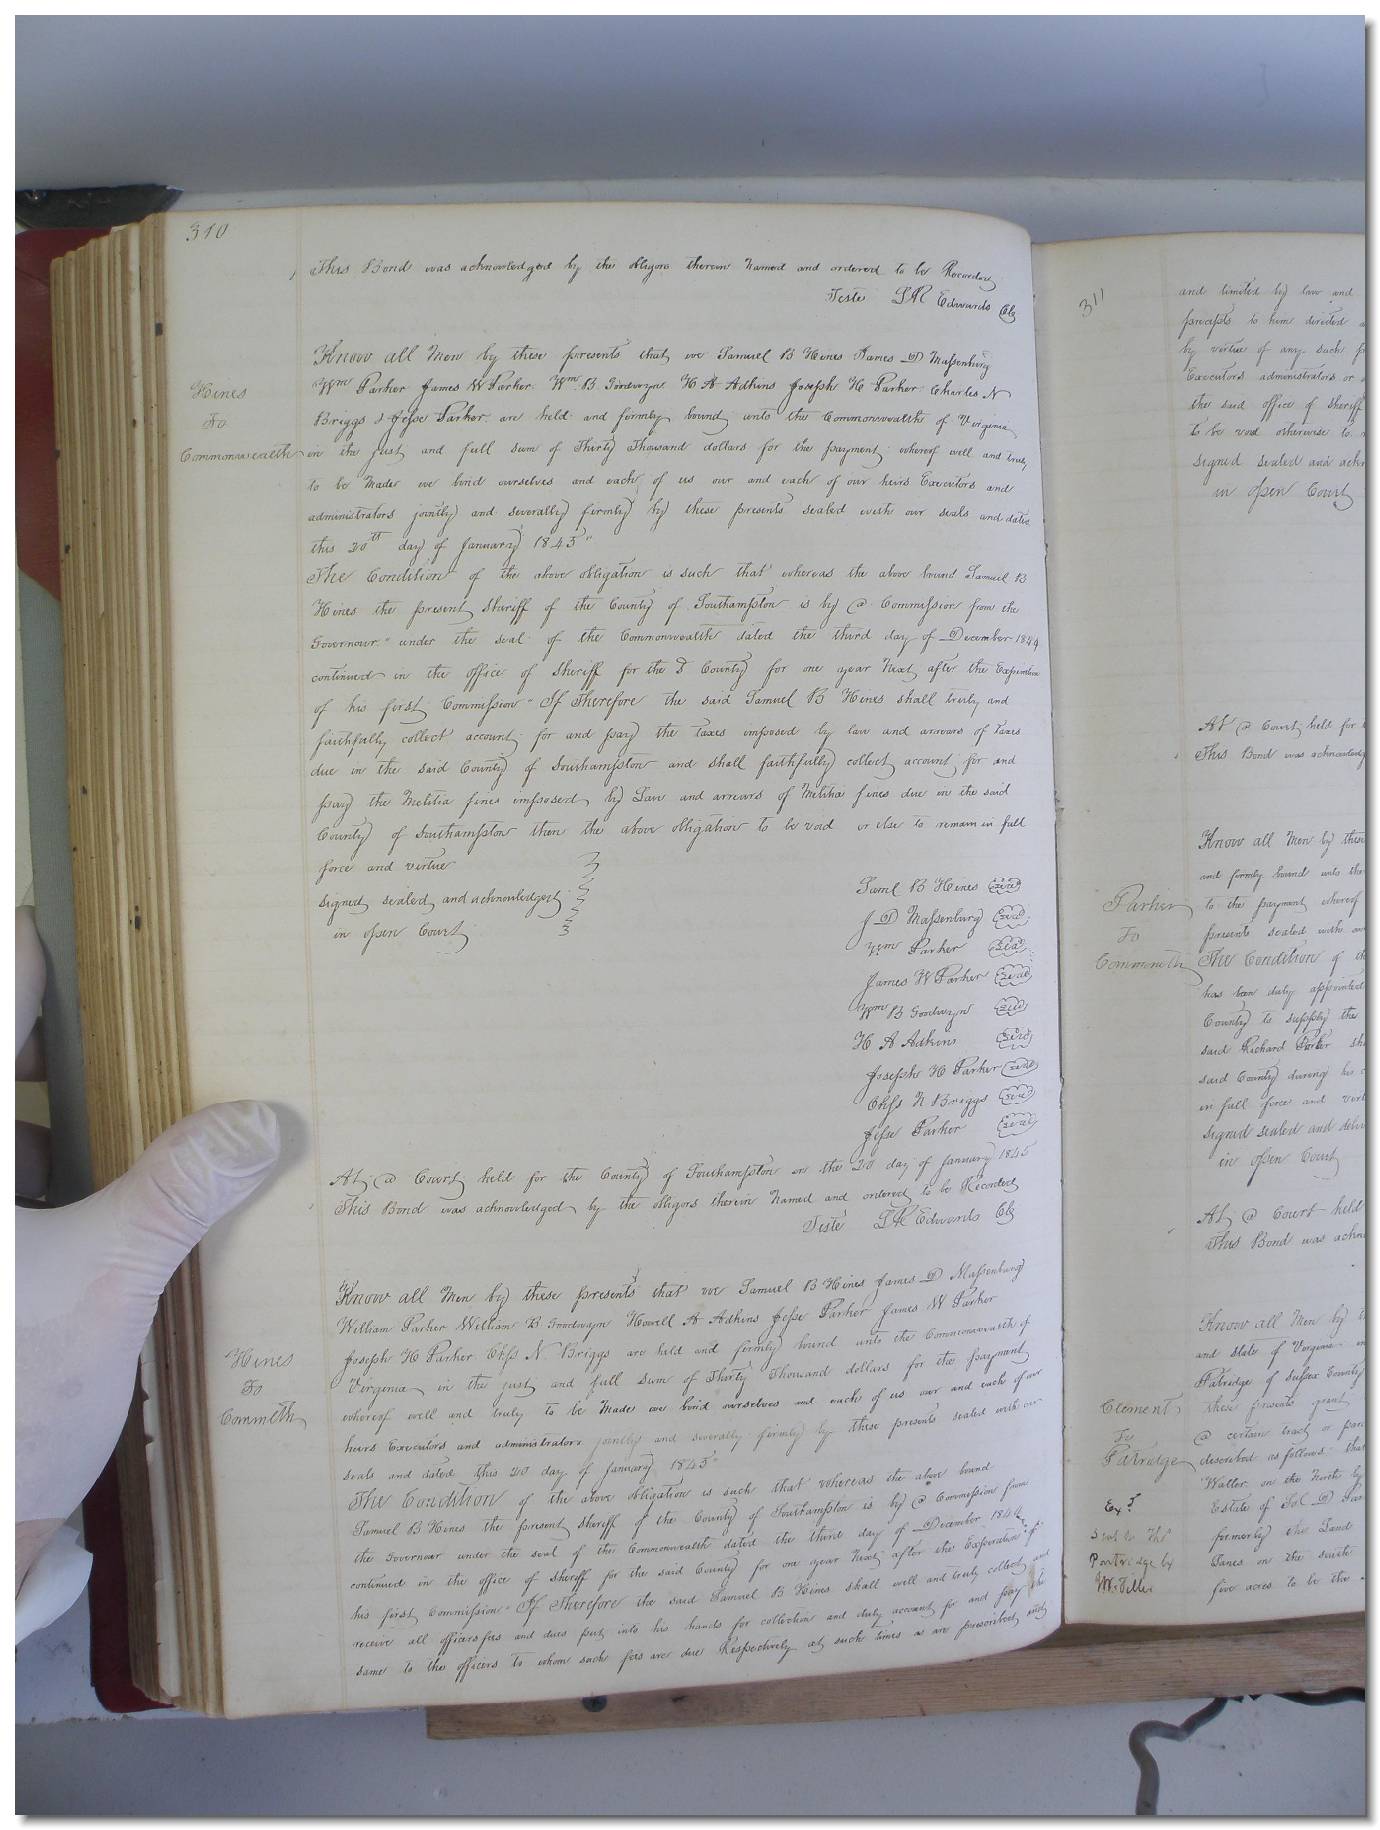 310
This Bond was acknowledged by the obligors therein Named and ordered to be Recorded
Teste L R Edwards Clk
Know all Men by these presents that we Samuel B Hines James D Massenburg
Hines
To
Commonwealth
Wm Parker James W Parker Wm B. Goodwyn H A Adkins Joseph H Parker Charles N
Briggs & Jesse Parker are held and firmly bound unto the Commonwealth of Virginia
in the just and full sum of Thirty Thousand dollars for the payment whereof well and truly
to be Made we bind ourselves and each of us our and each of our heirs Executors and
administrators jointly and severally firmly by these presents sealed with our seals and dated
this 20th day of January 1845"
The Condition of the above obligation is such that whereas the above bound Samuel B
Hines the present Sheriff of the County of Southampton is by @ Commission from the
Governour " under the seal of the Commonwealth dated the third day of December 1844
continued in the office of Sheriff for the Sd County for one year Next after the Expiration
of his first Commission " If Therefore the said Samuel B Hines shall truly and
faithfully collect account for and pay the taxes imposed by law and arrears of taxes
due in the said County of Southampton and shall faithfully collect account for and
pay the Melitia fines imposed by Law and arrears of Melitia fines due in the said
County of Southampton then the above obligation to be void or else to remain in full
force and virtue
signed sealed and acknowledged
in open Court
Saml B Hines seal
J D Massenburg seal
Wm Parker seal
James W Parker seal
Wm B Goodwyn seal
H A Adkins seal
Joseph H Parker seal
Chs N Briggs seal
Jesse Parker seal
At @ Court held for the County of Southampton on the 20 day of January 1845
This Bond was acknowledged by the obligors therein Named and ordered to be Recorded
Teste L R Edwards Clk
Know all Men by these presents that we Samuel B Hines James D Massenburg
William Parker William B Goodwyn Howell A Adkins Jesse Parker James W Parker
Hines
To
Commwth
Joseph H Parker Chs N Briggs are held and firmly bound unto the Commonwealth of
Virginia in the just and full sum of Thirty Thousand dollars for the payment
whereof well and truly to be Made we bind ourselves and each of us our and each of our
heirs Executors and administrators jointly and severally firmly by these presents sealed with our
seals and dated this 20 day of January 1845"
The Condition of the above obligation is such that whereas the above bound
Samuel B Hines the present Sheriff of the County of Southampton is by @ Commission from
the Governour under the seal of the Commonwealth dated the third day of December 1844
continued in the office of Sheriff for the said County for one year Next after the Expiration of
his first Commission " If Therefore the said Samuel B Hines shall well and truly collect and
receive all officers fees and dues put into his hands for collection and duly account for and pay the
same to the officers to whom such fees are due Respectively at such times as are prescribed
311
and limited by law and
precepts to him directed
by virtue of any such
Executors administrators or
the said office of Sheriff
to be void otherwise to
signed sealed and
in open Court
At @ Court held for
This Bond was
Know all Men by these
and firmly bound unto the
Parker
To
Commonwth
to the payment whereof
presents sealed with
The Condition of
has been duly appointed
County to supply the
said Richard Porter
said County during his
in full force and
signed sealed and
in open Court
At @ Court held
This Bond was
Know all Men by
and State of Virginia
Patridge of Sussex County
Clement
To
Patridge
these presents grant
@ certain tract or
described as follows that
Waller on the North by
Exd
Sent to Tho
Partridge by
W. Tiller
Estate of Sol D
formerly the Land
Janes on the south
five acres to be the